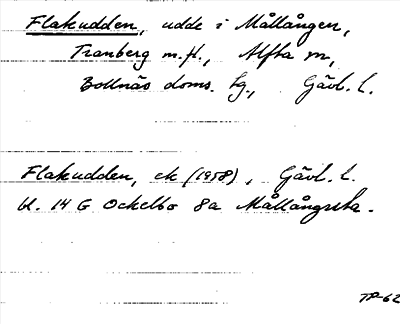 Flakudden, udde i Mållången,
Tranberg m.fl., Alfta sn,
Bollnäs doms. tg., Gävl. l.
Flakudden, ek (1958), Gävl. l.
bl. 14 G Ockelbo 8a Mållångsta.
TP-62